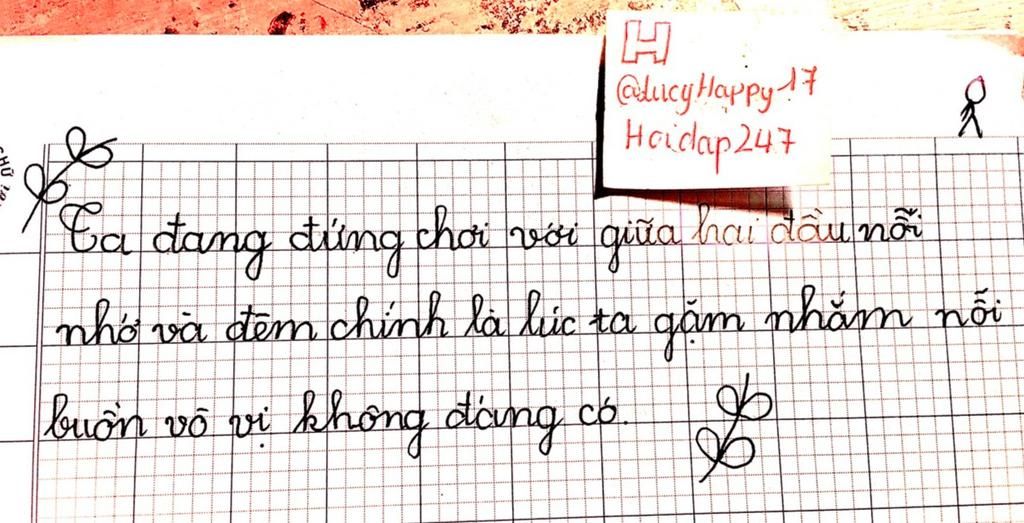 H
@LucyHappy17
Hoidap247
CHỮ
Ta đang đứng chơi với giữa hai đầu nỗi
nhớ và đêm chính là lúc ta gặm nhắm nỗi
buồn vô vị không đáng có.